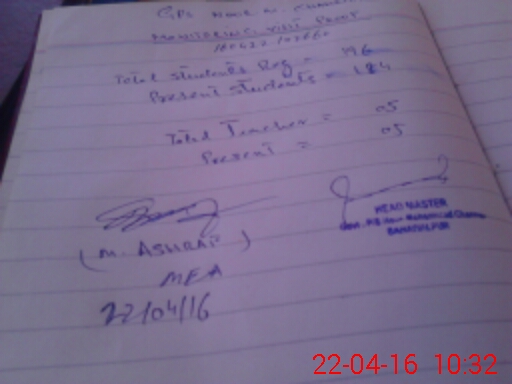 GPS Noor M. Channar
MONITORING VISIT PROOF
Total Students Reg = 196
Present Students = 184
Total Teacher = 05
Present = 05
(M. ASHRAF)
MEA
22/04/16
HEAD MASTER
Govt. P/S Noor Muhammad Channar
BAHAWALPUR
22-04-16 10:32